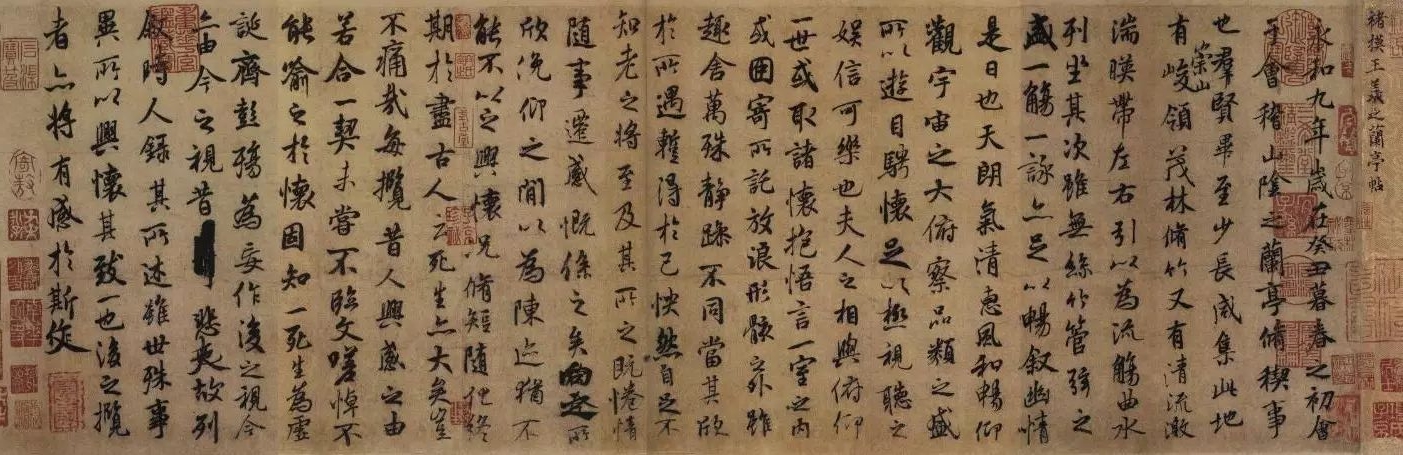 褚摸王羲之蘭亭帖
永和九年歲在癸丑暮春之初會
于會稽山陰之蘭亭脩稧事
也羣賢畢至少長咸集此地
有崇山峻領茂林脩竹又有清流激
湍暎帶左右引以為流觴曲水
列坐其次雖無絲竹管弦之
盛一觴一詠亦足以暢叙幽情
是日也天朗氣清惠風和暢仰
觀宇宙之大俯察品類之盛
所以遊目騁懷足以極視聽之
娛信可樂也夫人之相與俯仰
一世或取諸懷抱悟言一室之內
或因寄所託放浪形骸之外雖
趣舍萬殊靜躁不同當其欣
於所遇暫得於己怏然自足不
知老之將至及其所之既惓情
隨事遷感慨係之矣向之所
欣俛仰之間以為陳迹猶不
能不以之興懷况脩短隨化終
期於盡古人云死生亦大矣豈
不痛哉每攬昔人興感之由
若合一契未嘗不臨文嗟悼不
能喻之於懷固知一死生為虛
誕齊彭殤為妄作後之視今
亦由今之視昔悲夫故列
敘時人錄其所述雖世殊事
異所以興懷其致一也後之攬
者亦將有感於斯文